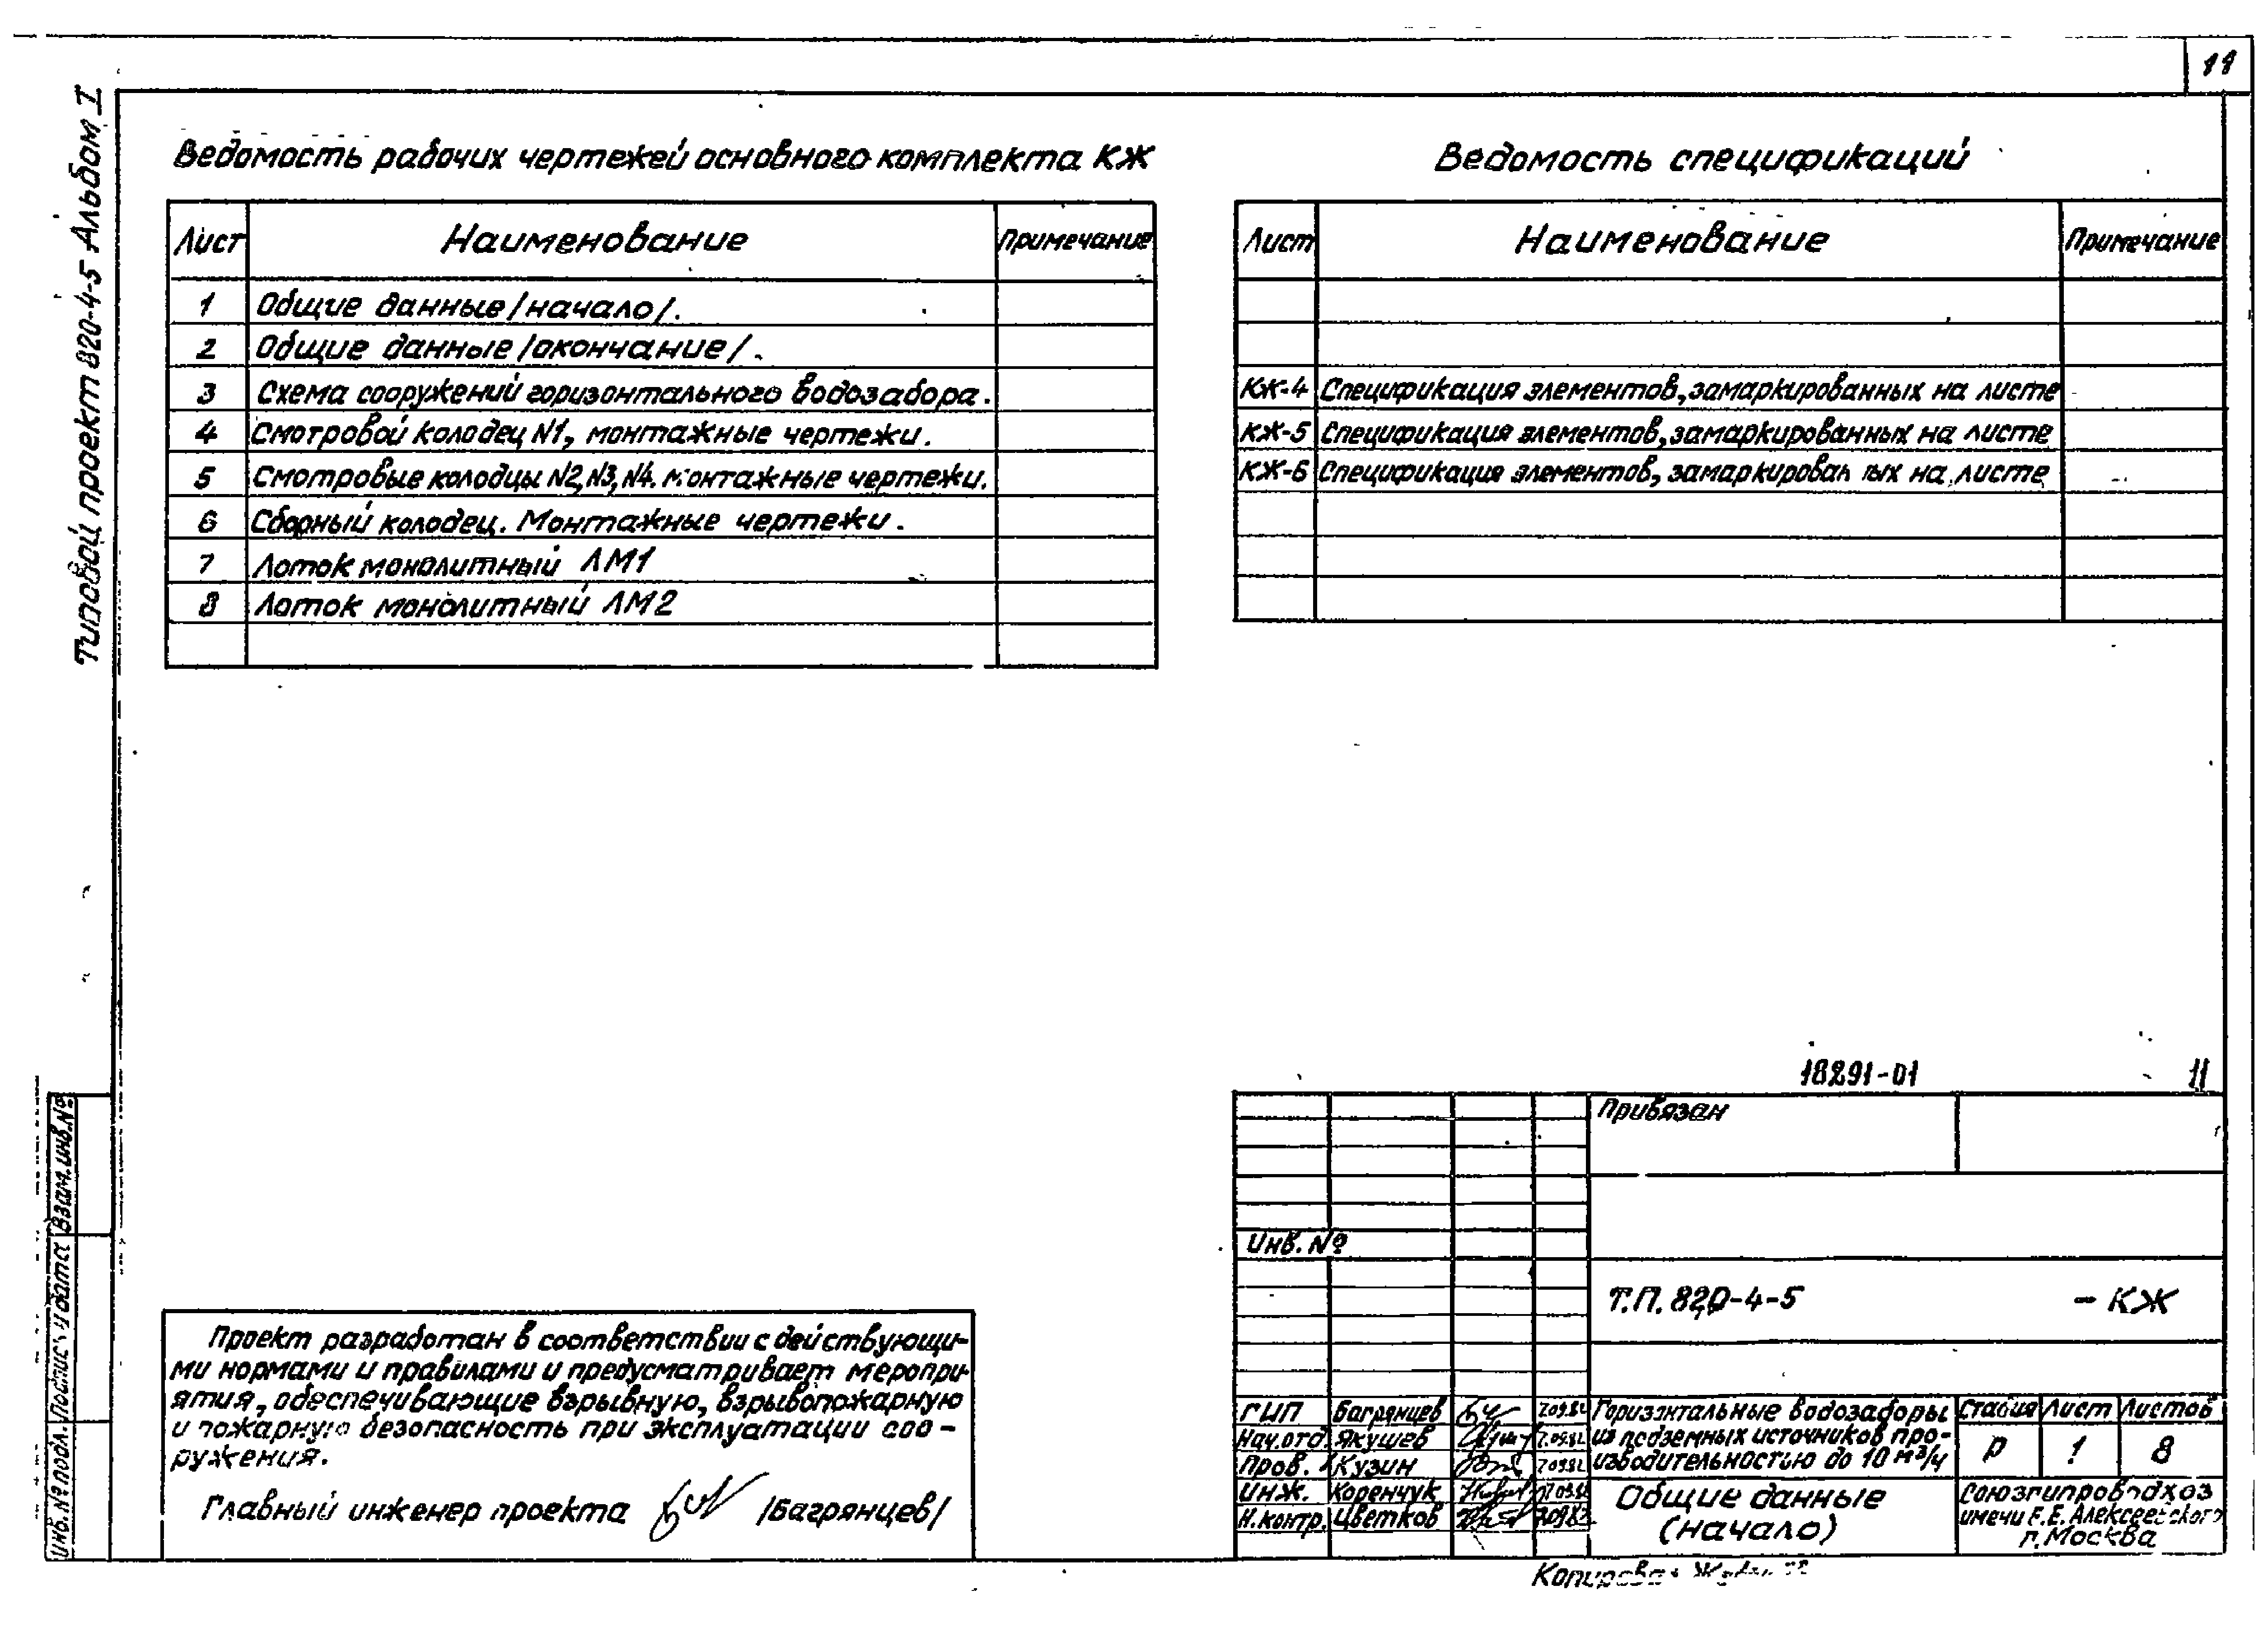 11
Типовой проект 820-4-5 Альбом I
Ведомость рабочих чертежей основного комплекта КЖ
Лист Наименование Примечание
1 Общие данные /начало/.
2 Общие данные /окончание/.
3 Схема сооружений горизонтального водозабора.
4 Смотровой колодец N1, монтажные чертежи.
5 Смотровые колодцы N2, N3, N4. монтажные чертежи.
6 Сборный колодец. Монтажные чертежи.
7 Лоток монолитный ЛМ1
8 Лоток монолитный ЛМ2
Ведомость спецификаций
Лист Наименование Примечание
КЖ-4 Спецификация элементов, замаркированных на листе
КЖ-5 Спецификация элементов, замаркированных на листе
КЖ-6 Спецификация элементов, замаркированных на листе
Проект разработан в соответствии с действующи-
ми нормами и правилами и предусматривает меропри-
ятия, обеспечивающие взрывную, взрывопожарную
и пожарную безопасность при эксплуатации соо-
ружения.
Главный инженер проекта /Багрянцев/
18291-01 11
Привязан
Инв. №
Т.П. 820-4-5 - КЖ
ГИП Багрянцев
Нач.отд Якушев
Пров. Кузин
Инж. Коренчук
Н.контр. Цветков
Горизонтальные водозаборы
из подземных источников про-
изводительностью до 10 м³/ч
Стадия Лист Листов
Р 1 8
Общие данные
(начало)
Союзгипроводхоз
имени Е.Е. Алексеевского
г. Москва
Копировал
Инв.№ подл. Подпись и дата Взам.инв.№